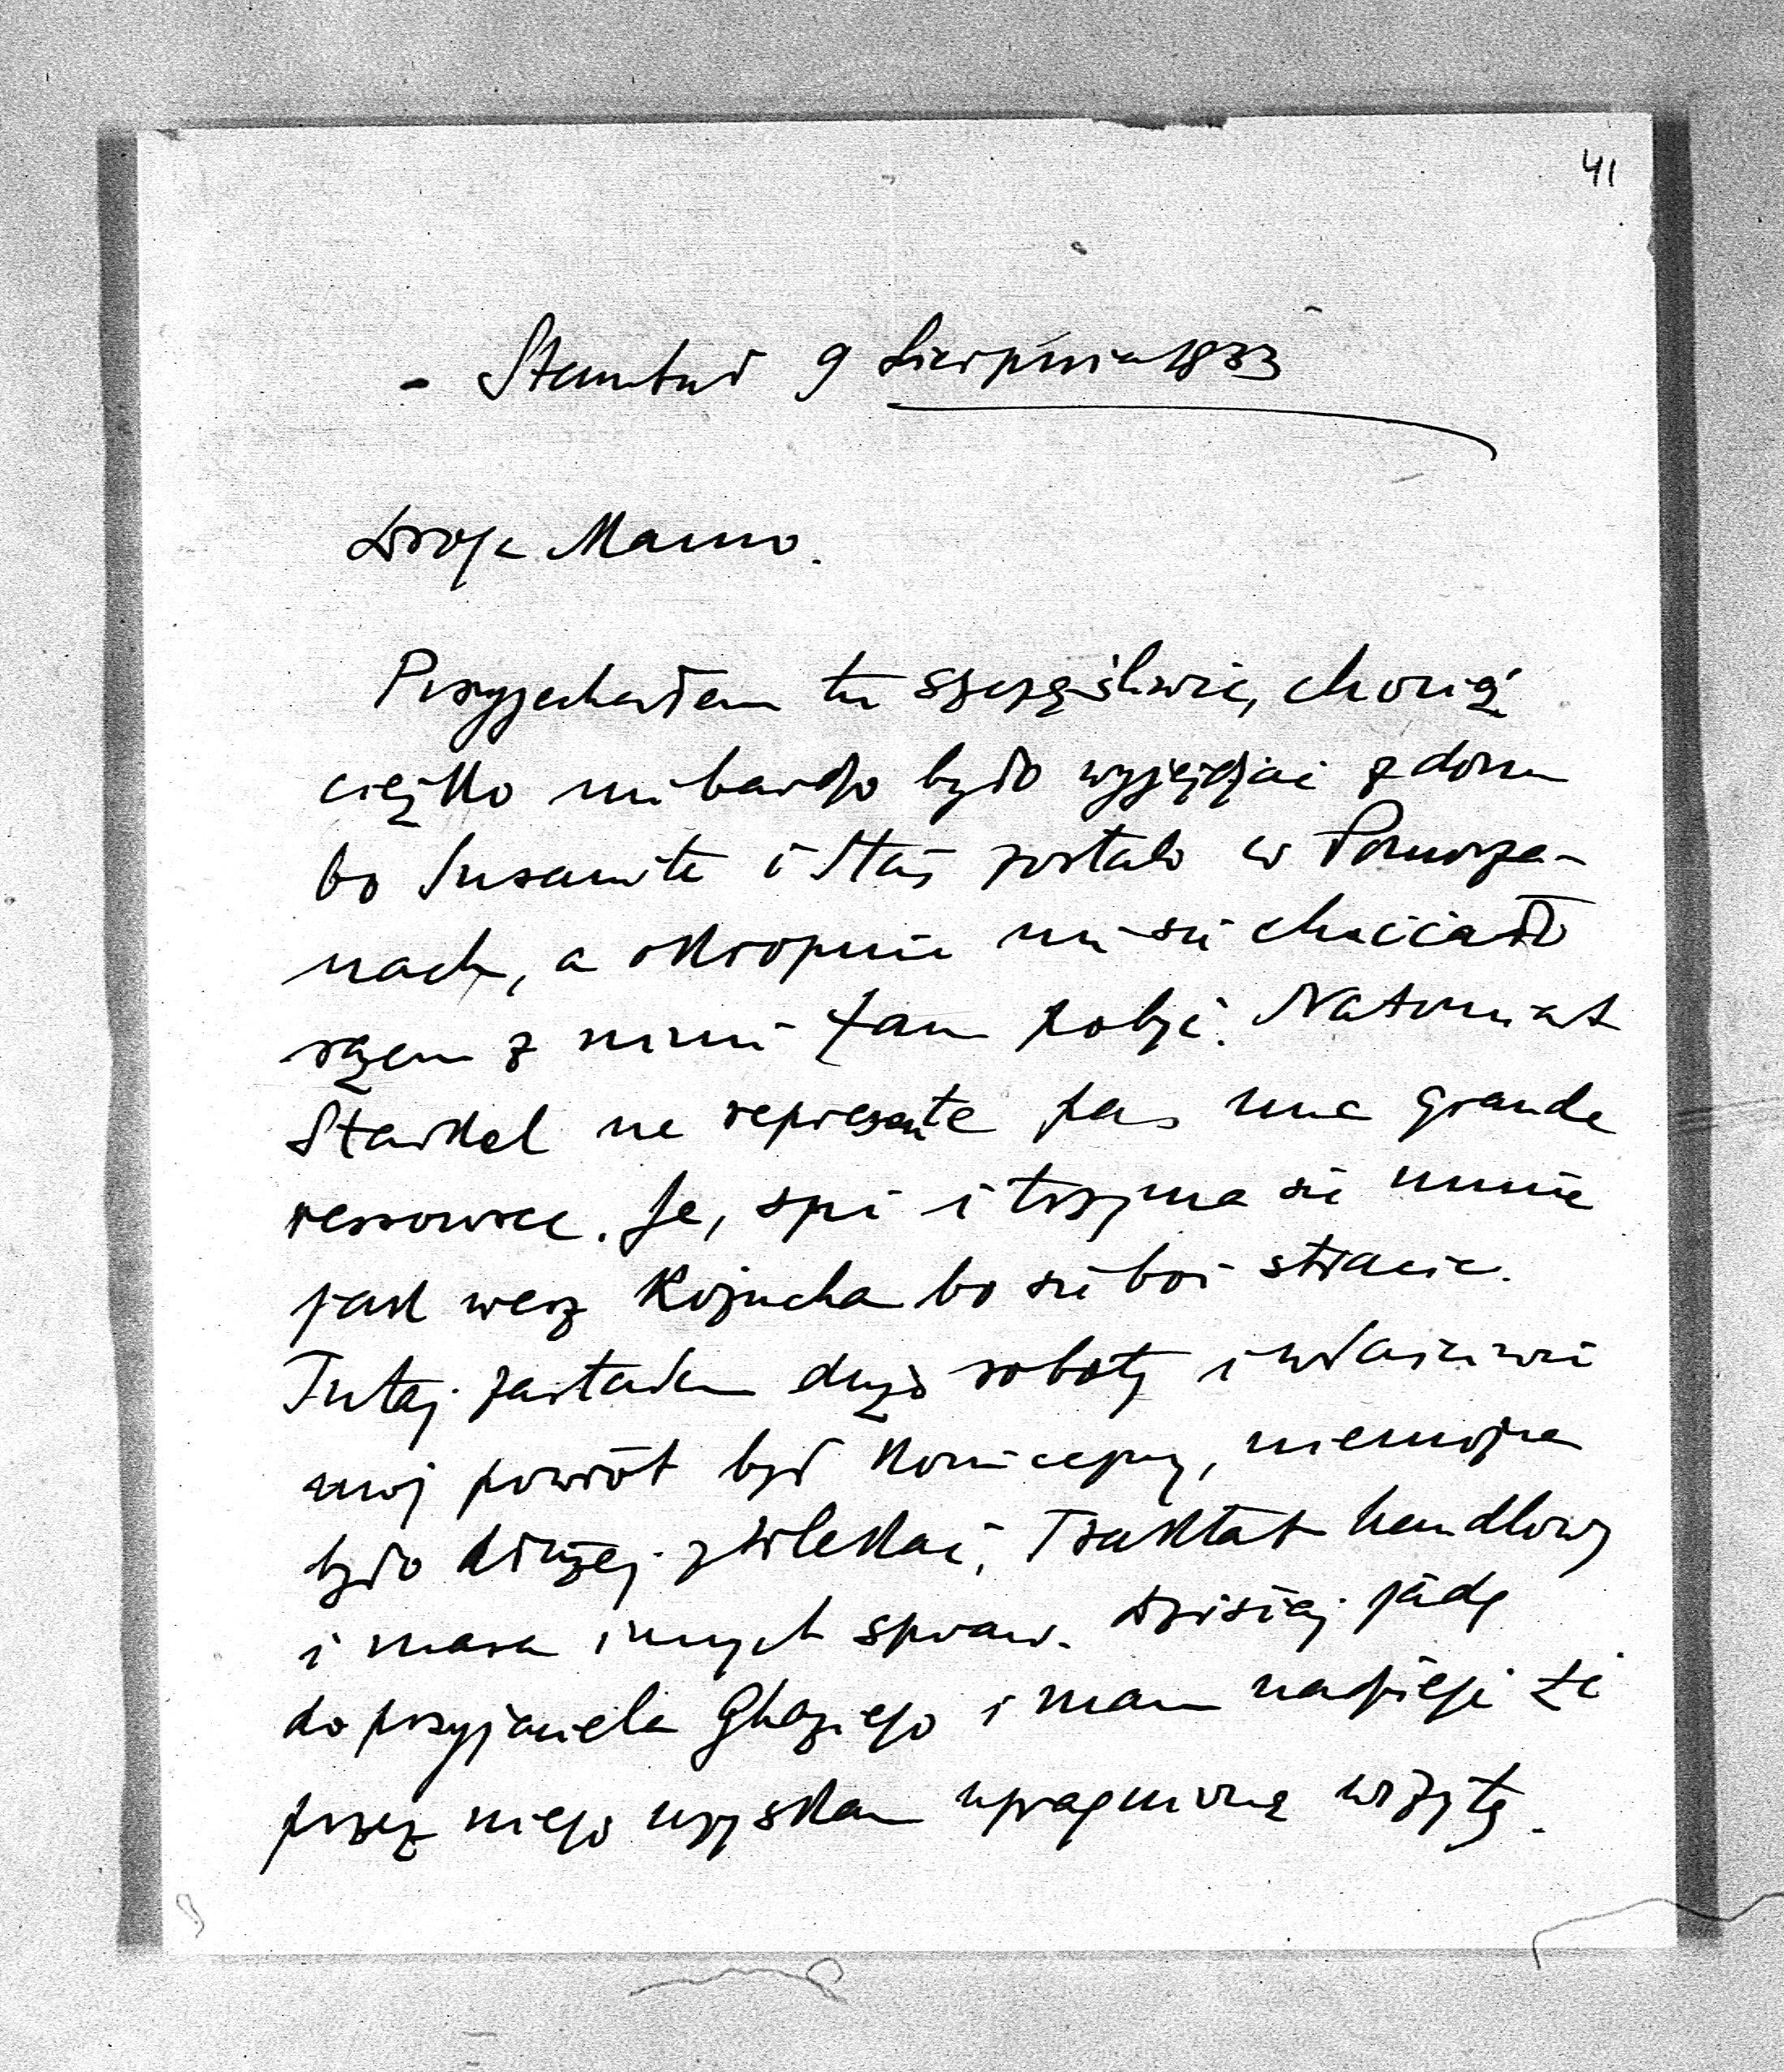 41
- Stambuł 9 Sierpnia 1933
Droga Mamo.
Przyjechałem tu szczęśliwie, chociaż
ciężko mi bardzo było wyjeżdżać z domu
bo i Staś zostało w Pomorza-
nach, a okropnie mi się chciało
razem z nimi tam pobyć. Natomiast
Starkel ne represente pas une grande
ressource. Je, spi i trzyma się mnie
jak wesz kożucha bo się boi stracić.
Tutaj zastałem dużo roboty i właściwie
mój powrót był konieczny, niemożna
było dłużej zwlekać, Traktat handlowy
i masa innych spraw. Dzisiaj jadę
do przyjaciela Ghaziego i mam nadzieję że
przez niego uzyskam upragnioną wizytę.